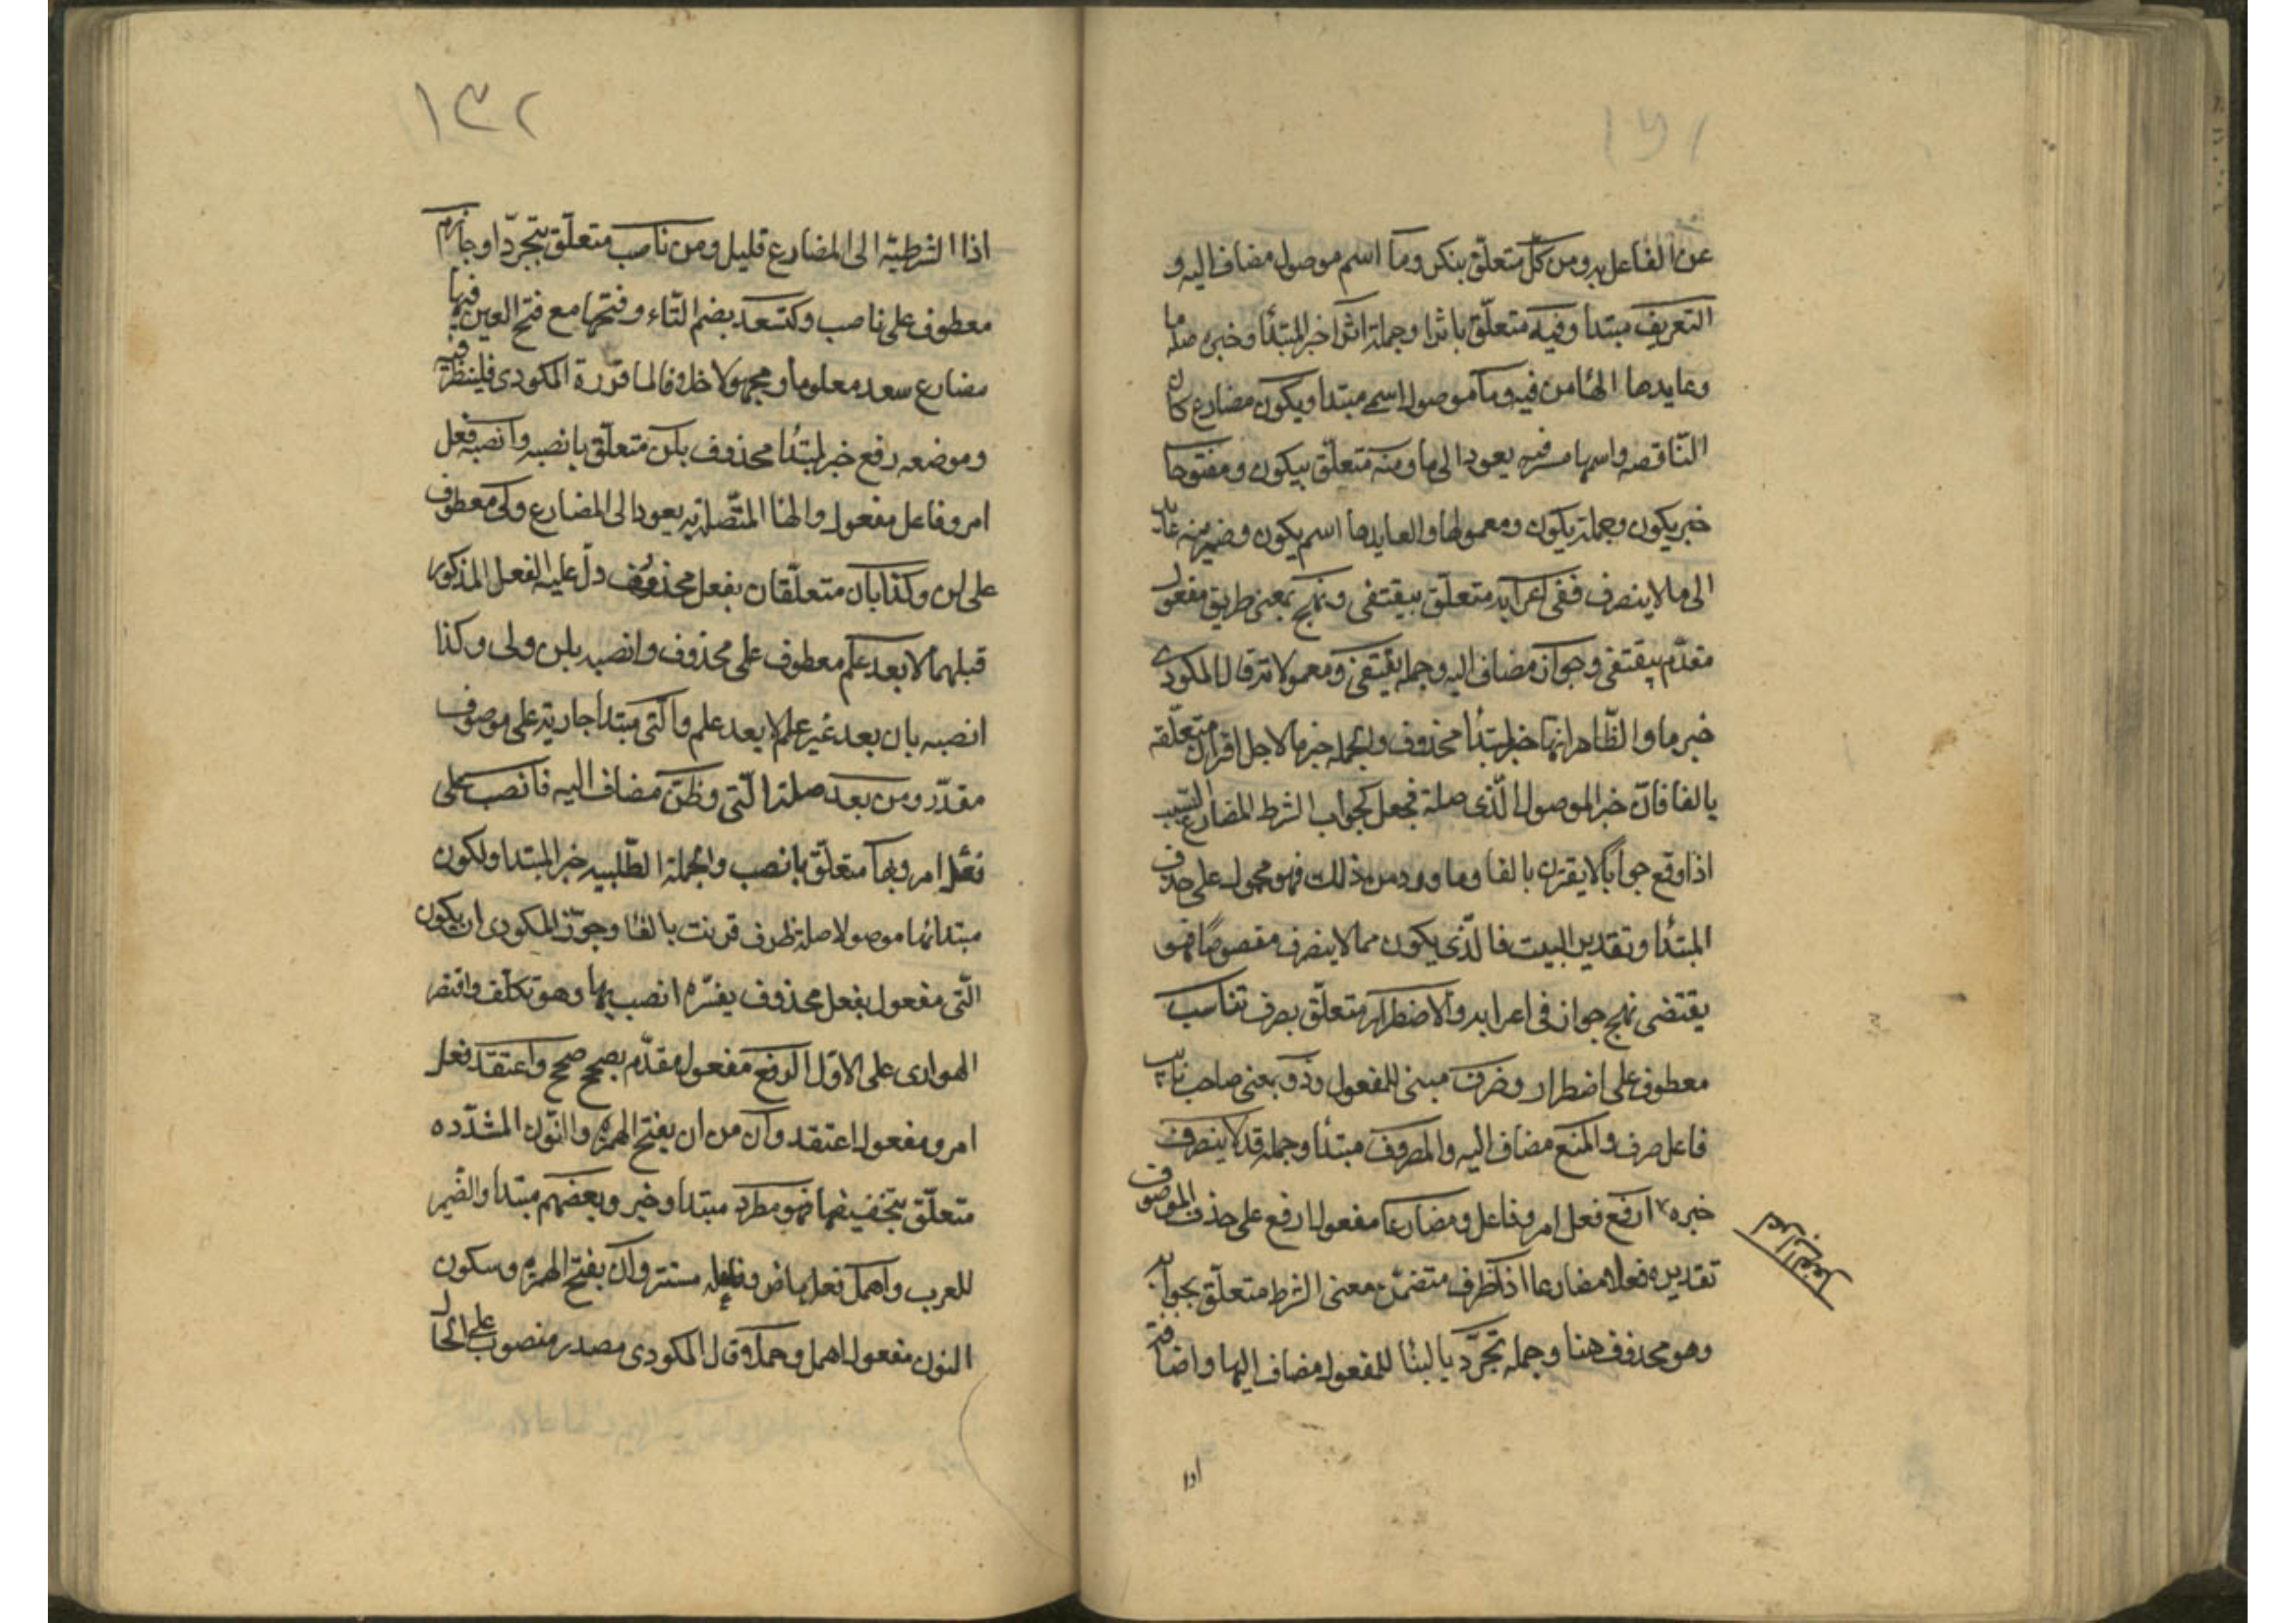 عن الفاعل به ومن كل متعلّق بنكر وما اسم موصول مضاف اليه و
التعريف مبتدا وفيه متعلّق باثرا وجملة اثرا خبر المبتدأ وخبره صلة ما
وعايدها الهأ من فيه وما موصول اسمى مبتدا ويكون مضارع كان
النّاقصه واسمها مستتر فيه يعود الى ما ومنه متعلّق بيكون ومنقوصا
خبر يكون وجملة يكون ومعمولها والعايدها اسم يكون وضمير منه عايد
الى ما لا ينصرف ففى اعرابه متعلّق بيقتفى ونهج بمعنى طريق مفعول
مقدّم بيقتفى وجوار مضاف اليه وجمله يقتفى ومعمولاته قال المكودى
خبر ما والظّاهر انها خبر لمبتدأ محذوف والجمله خبر ما لاجل اقران متعلّقه
بالفا فانّ خبر الموصول الّذى صلة فجعل كجواب الشرط المضارع
اذا وقع جواباً لا يقترن بالفا وما ورد من ذلك فهو محمول على حذف
المبتدأ وتقدير البيت فالّذى يكون مما لا ينصرف منقوصاً فهو
يقتضى نهج جوار فى اعرابه ولاضطرار متعلّق بصرف تناسب
معطوف على اضطرار وصرف مبنى للمفعول وذو بمعنى صاحب نايب
فاعل صرف والمنع مضاف اليه والمصروف مبتدأ وجملة قد لا ينصرف
خبره ارفع فعل امر وفاعل ومضارعا مفعول ارفع على حذف الموصوف
تقديره فعلا مضارعا اذا ظرف متضمّن معنى الشرط متعلّق بجوابه
وهو محذوف هنا وجمله تجرّد بالبنأ للمفعول مضاف اليها واضافة
اعراب الفعل
اذا
١٣٢
اذا الشرطيّه الى المضارع قليل ومن ناصب متعلّق بتجرّد او جازم
معطوف على ناصب وكتسعد بضم التّاء وفتحها مع فتح العين فيهما
مضارع سعد معلوما او مجهولا خلافا لما قرّره المكودى فلينظر فيه
وموضعه رفع خبر لمبتدأ محذوف بلن متعلّق بانصبه وانصبه فعل
امر وفاعل مفعول والها المتّصلة به يعود الى المضارع وكى معطوف
على لن وكذا بأن متعلّقان بفعل محذوف دلّ عليه الفعل المذكور
قبلهما لا بعد علم معطوف على محذوف وانصبه بلن ولى وكذا
انصبه بان بعد غير علم لا بعد علم والتى مبتدا جارية على موصوف
مقدّر ومن بعد صلة الّتى وظنّ مضاف اليه فانصب على
فعل امر وبها متعلّق بانصب والجملة الطّلبيه خبر المبتدا ولكون
مبتدائها موصولا صلة ظرف قرنت بالفأ وجوّز المكودى ان يكون
الّتى مفعول بفعل محذوف يفسّره انصب بها وهو تكلّف واقتصر
الهوارى على الاوّل الرفع مفعول مقدّم بصحح صحح واعتقد فعل
امر ومفعول اعتقد وأن من ان بفتح الهمزه والنّون المشدّده
متعلّق بتخفيفها فهو مطرد مبتدا وخبر وبعضهم مبتدا والضّمير
للعرب واهمل فعل ماض وفاعله مستتر وان بفتح الهمزه وسكون
النون مفعول اهمل وحملا وقال المكودى مصدر منصوب على الحال